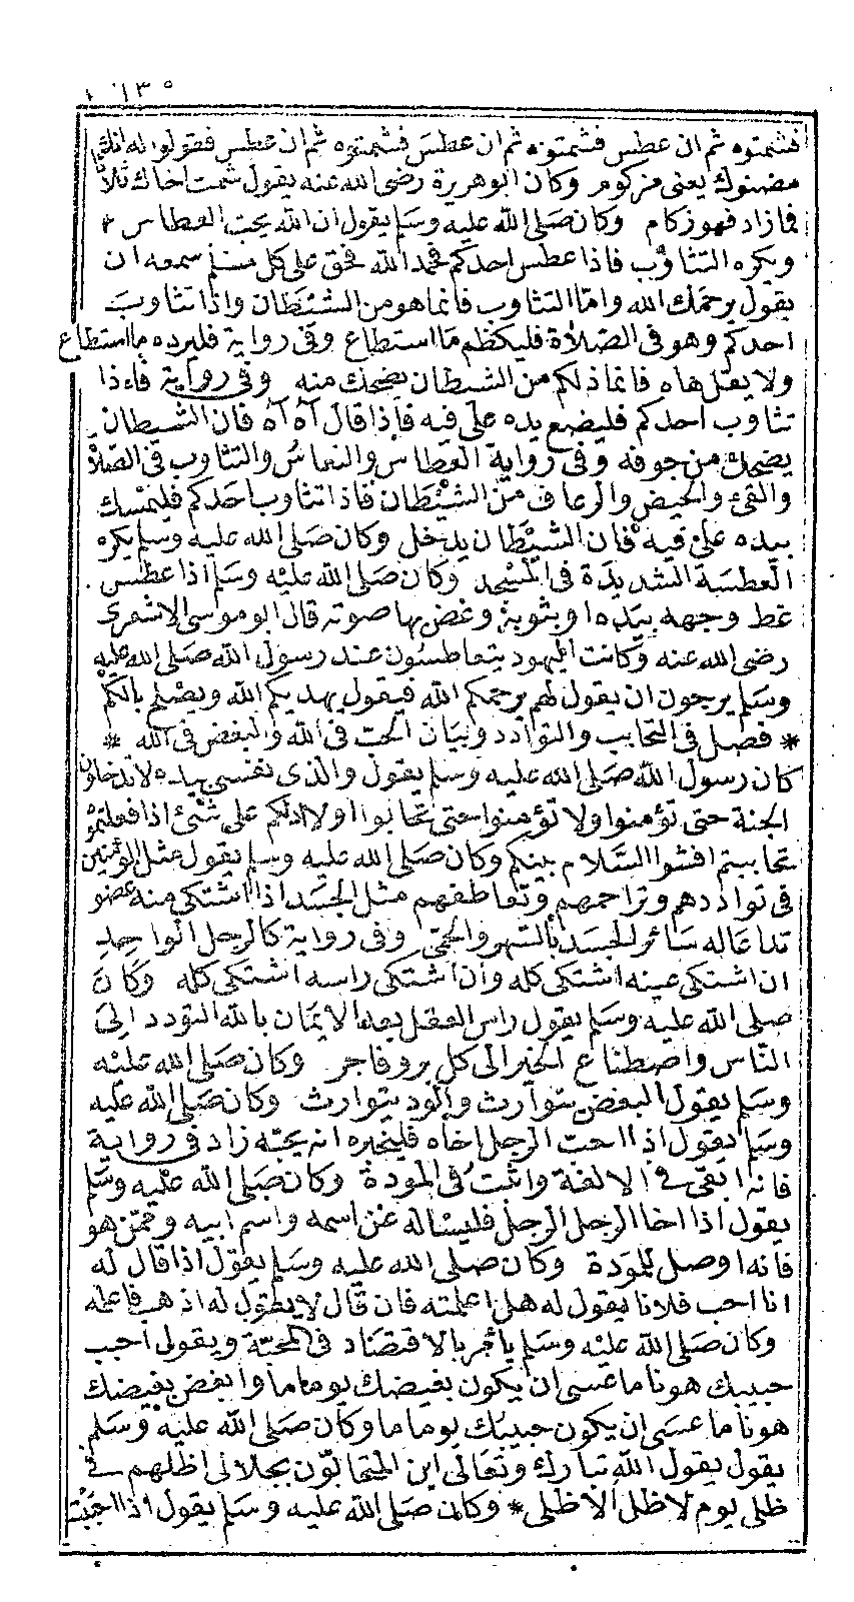 ١٣٥
فشمتوه ثم ان عطس فشمتوه ثم ان عطس فشمتوه ثم ان عطس فقولوا له انك
مضنوك يعنى مزكوم وكان ابو هريرة رضى الله عنه يقول شمت اخاك ثلاثا
فما زاد فهو زكام وكان صلى الله عليه وسلم يقول ان الله يحب العطاس
ويكره التثاؤب فاذا عطس احدكم فحمد الله فحق على كل مسلم سمعه ان
يقول يرحمك الله واما التثاوب فانما هو من الشيطان واذا تثاوب
احدكم وهو فى الصلاة فليكظم ما استطاع وفى رواية فليرده ما استطاع
ولا يقل هاه فانما ذلكم من الشيطان يضحك منه وفى رواية فاذا
تثاوب احدكم فليضع يده على فيه فاذا قال آه آه فان الشيطان
يضحك من جوفه وفى رواية العطاس والنعاس والتثاوب فى الصلاة
والقئ والحيض والرعاف من الشيطان فاذا تثاوب احدكم فليمسك
بيده على فيه فان الشيطان يدخل وكان صلى الله عليه وسلم يكره
العطسة الشديدة فى المسجد وكان صلى الله عليه وسلم اذا عطس
غط وجهه بيده او بثوبه وغض بها صوته قال ابو موسى الاشعرى
رضى الله عنه وكانت اليهود يتعاطسون عند رسول الله صلى الله عليه
وسلم يرجون ان يقول لهم يرحمكم الله فيقول يهديكم الله ويصلح بالكم
* فصل فى التحابب والتوادد وبيان الحب فى الله والبغض فى الله *
كان رسول الله صلى الله عليه وسلم يقول والذى نفسى بيده لا تدخلون
الجنة حتى تؤمنوا ولا تؤمنوا حتى تحابوا اولا ادلكم على شئ اذا فعلتموه
تحاببتم افشوا السلام بينكم وكان صلى الله عليه وسلم يقول مثل المؤمنين
فى تواددهم وتراحمهم وتعاطفهم مثل الجسد اذا اشتكى منه عضو
تداعا له سائر الجسد بالسهر والحمى وفى رواية كالرجل الواحد
ان اشتكى عينه اشتكى كله وان اشتكى راسه اشتكى كله وكان
صلى الله عليه وسلم يقول راس العقل بعد الايمان بالله التودد الى
الناس واصطناع الخير الى كل بر وفاجر وكان صلى الله عليه
وسلم يقول البغض يتوارث والود يتوارث وكان صلى الله عليه
وسلم يقول اذا احب الرجل اخاه فليخبره انه يحبه زاد فى رواية
فانه ابقى فى الالفة واثبت فى المودة وكان صلى الله عليه وسلم
يقول اذا اخا الرجل الرجل فليساله عن اسمه واسم ابيه وممن هو
فانه اوصل للمودة وكان صلى الله عليه وسلم يقول اذا قال له
انا احب فلانا يقول له هل اعلمته فان قال لا يقول له اذهب فاعلمه
وكان صلى الله عليه وسلم يأمر بالاقتصاد فى المحبة ويقول احبب
حبيبك هونا ما عسى ان يكون بغيضك يوما ما وابغض بغيضك
هونا ما عسى ان يكون حبيبك يوما ما وكان صلى الله عليه وسلم
يقول يقول الله تبارك وتعالى اين المتحابون بجلالى اظلهم فى
ظلى يوم لا ظل الا ظلى * وكان صلى الله عليه وسلم يقول اذا احببت